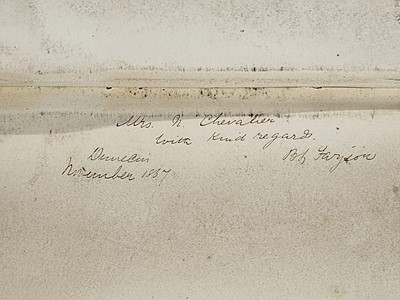 Mrs. N. Chevalier
with kind regards.
Dunedin
November 1887